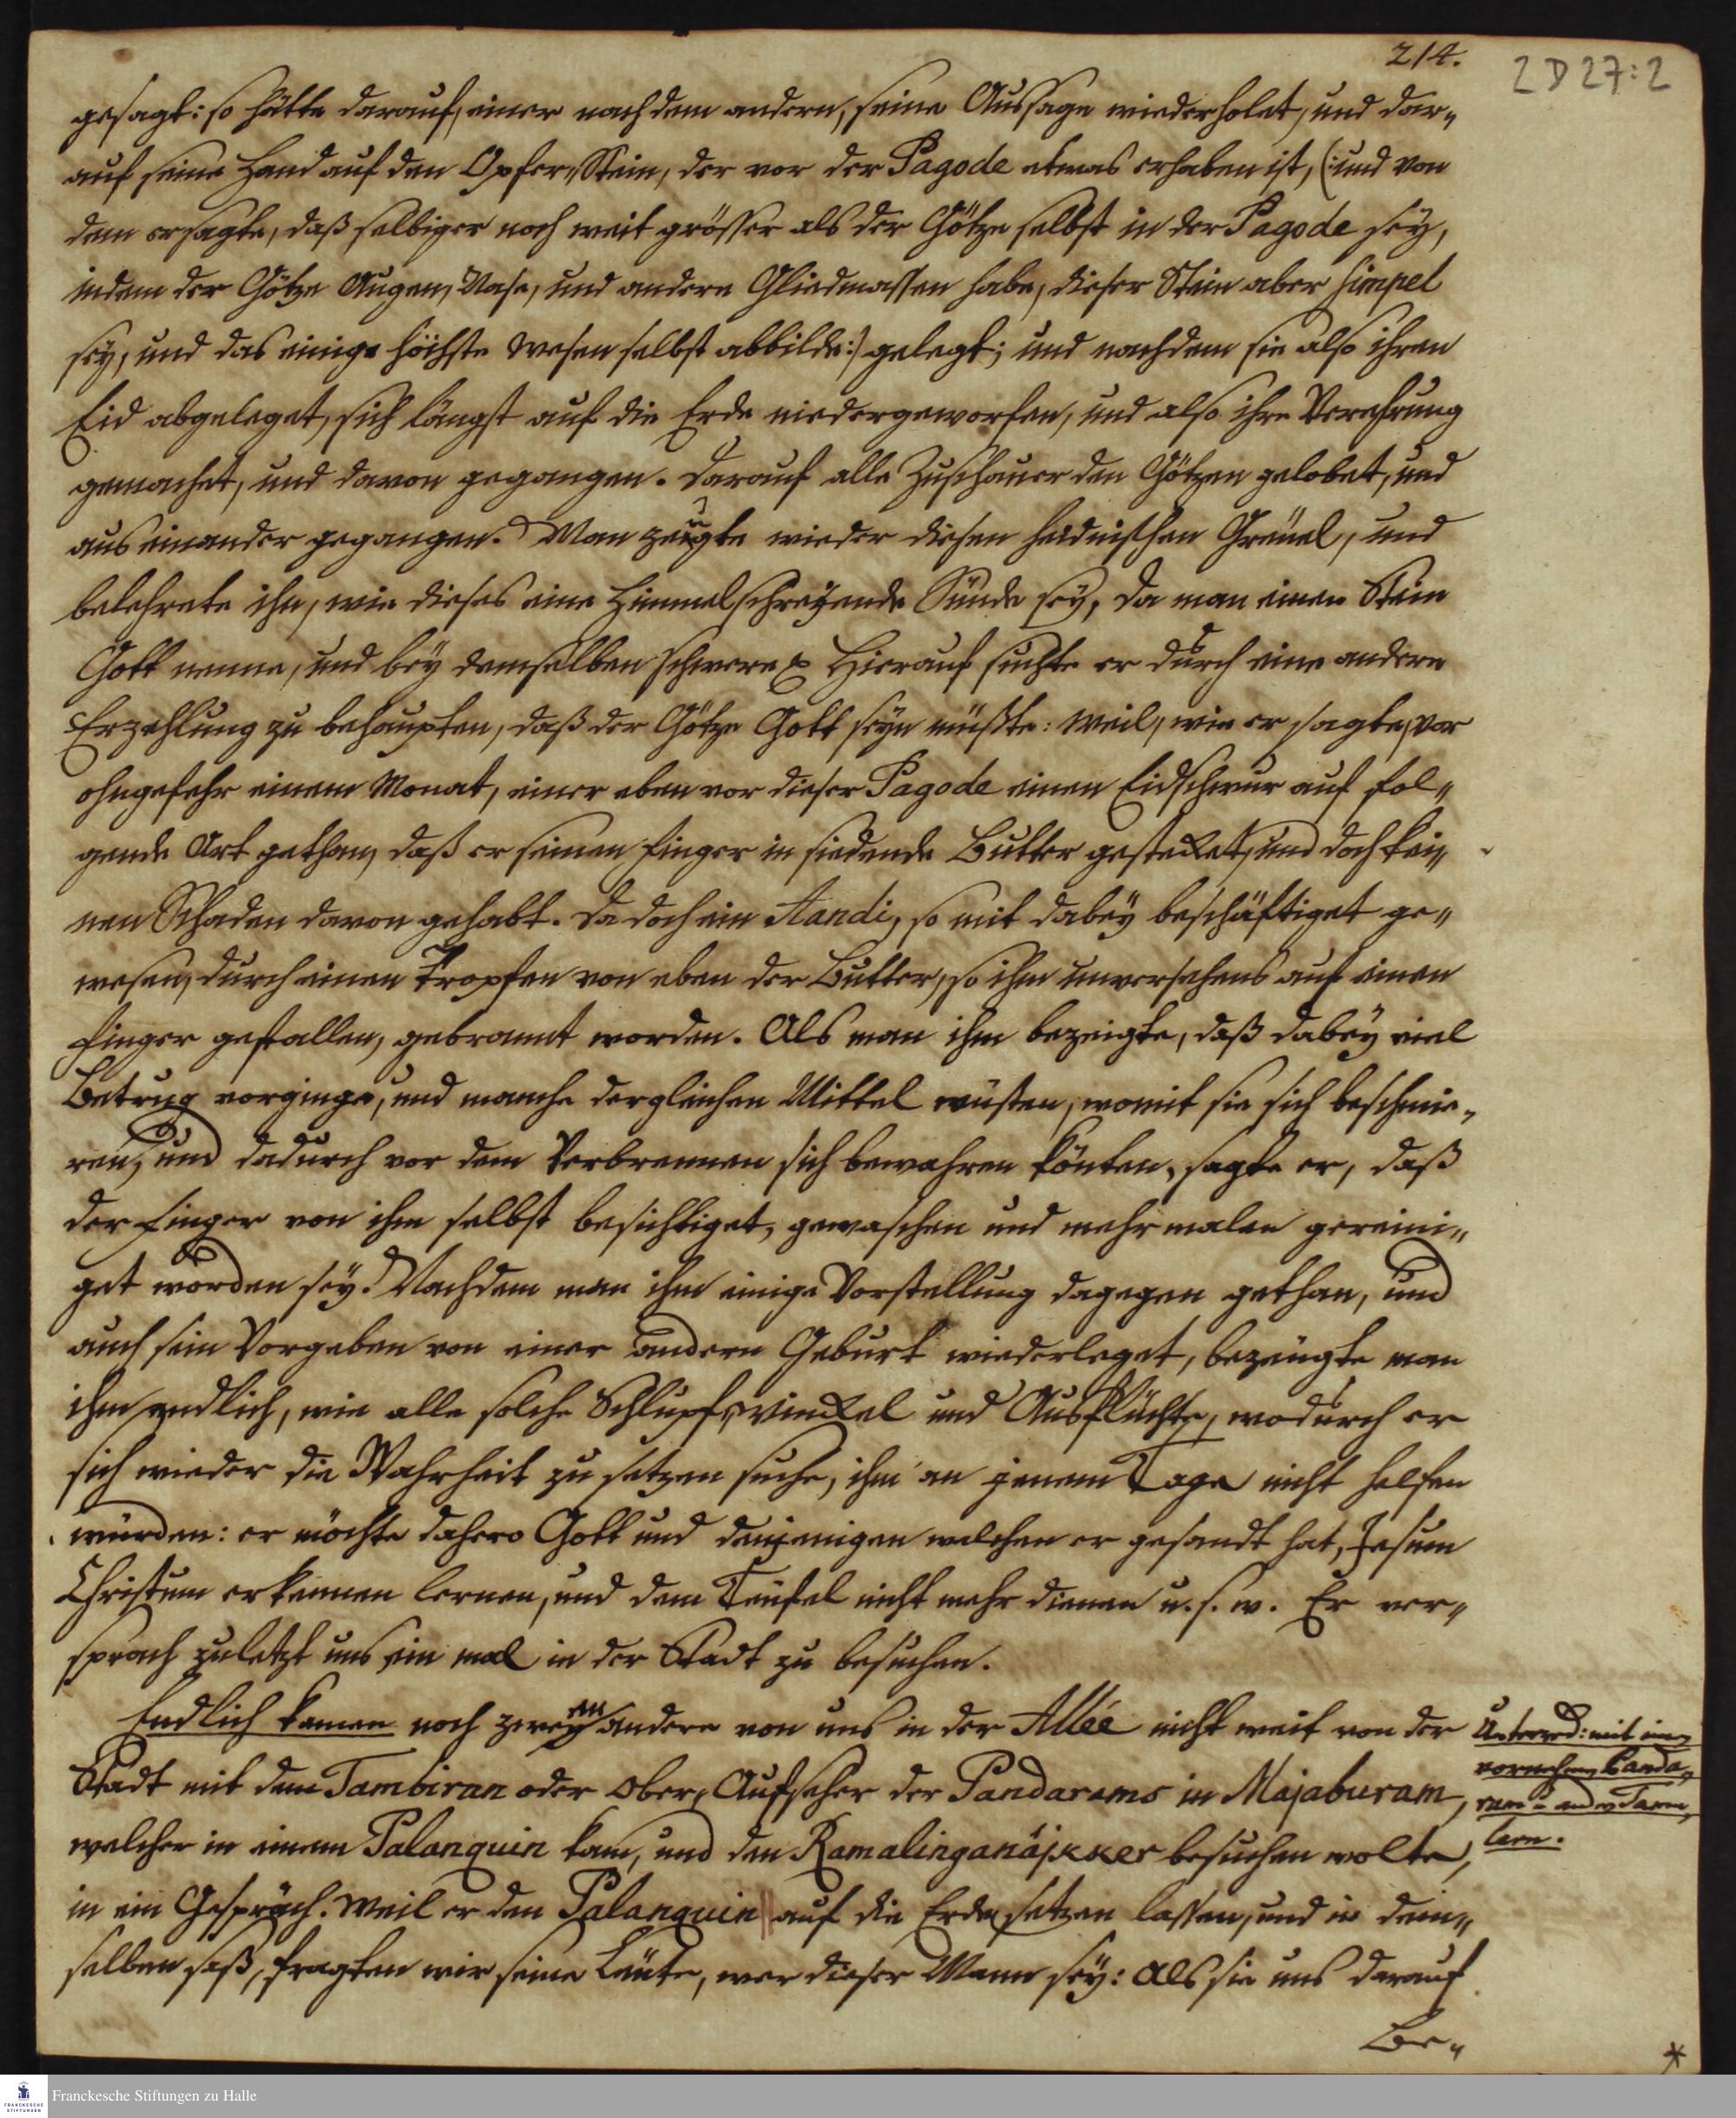 214.
2 D 27:2
gesagt: so hätte darauf, einer nach dem andern, seine Aussage wiederholet, und dar„
auf seine Hand auf den Opfer„Stein, der vor der Pagode etwas erhaben ist, (: und von
dem er sagte, daß selbiger noch weit grösser als der Götze selbst in der Pagode sey,
indem der Götze Augen, Nase, und andere Gliedmassen habe, dieser Stein aber simpel
sey, und das einige höchste Wesen selbst abbilde:) gelegt; und nachdem sie also ihren
Eid abgeleget, sich längst auf die Erde niedergeworfen, und also ihre Verehrung
gemachet, und davon gegangen. Darauf alle Zuschauer den Götzen gelobet, und
aus einander gegangen. Man zeugte wieder diesen heidnischen Greüel, und
belehrete ihn, wie dieses eine Himmelschreyende Sünde sey, da man einen Stein
Gott nenne, und bey demselben schwere. Hierauf suchte er durch eine andere
Erzehlung zu behaupten, daß der Götze Gott seyn müßte: weil, wie er sagte, vor
ohngefehr einem Monat, einer eben vor dieser Pagode einen Eidschwur auf fol„
gende Art gethan, daß er seinen Finger in siedende Butter gestecket, und doch kei„
nen Schaden davon gehabt. Da doch ein Aandi, so mit dabey beschäftiget ge„
wesen, durch einen Tropfen von eben der Butter, so ihm unversehens auf einen
Finger gefallen, gebrannt worden. Als man ihm bezeigte, daß dabey viel
Betrug vorginge, und manche dergleichen Mittel wüsten, womit sie sich beschmie„
ren, und dadurch vor dem Verbrennen sich bewahren könten, sagte er, daß
der Finger von ihm selbst besichtiget, gewaschen und mehrmalen gereini„
get worden sey. Nachdem man ihm einige Vorstellung dagegen gethan, und
auch sein Vorgeben von einer andern Geburt wiederleget, bezeugte man
ihm endlich, wie alle solche Schlupf„winckel und Ausflüchte, wodurch er
sich wieder die Wahrheit zu setzen suche, ihm an jenem Tage nicht helfen
würden: er möchte dahero Gott und denjenigen welchen er gesandt hat, Jesum
Christum erkennen lernen, und dem Teüfel nicht mehr dienen u. s. w. Er ver„
sprach zuletzt uns ein mal in der Stadt zu besuchen.
Endlich kamen noch zween andere von uns in der Allée nicht weit von der
Stadt mit dem Tambiran oder Ober„Aufseher der Pandarams in Majaburam,
welcher in einem Palanquin kam, und den Ramalinganájkker besuchen wolte,
in ein Gespräch. Weil er den Palanquin auf die Erde setzen lassen, und in dem„
selben saß, fragten wir seine Leüte, wer dieser Mann sey: Als sie uns darauf
Be„
Unterred: mit ein
vornehmen Panda„
ram
*
Franckesche Stiftungen zu Halle
FRANCKESCHE
STIFTUNGEN